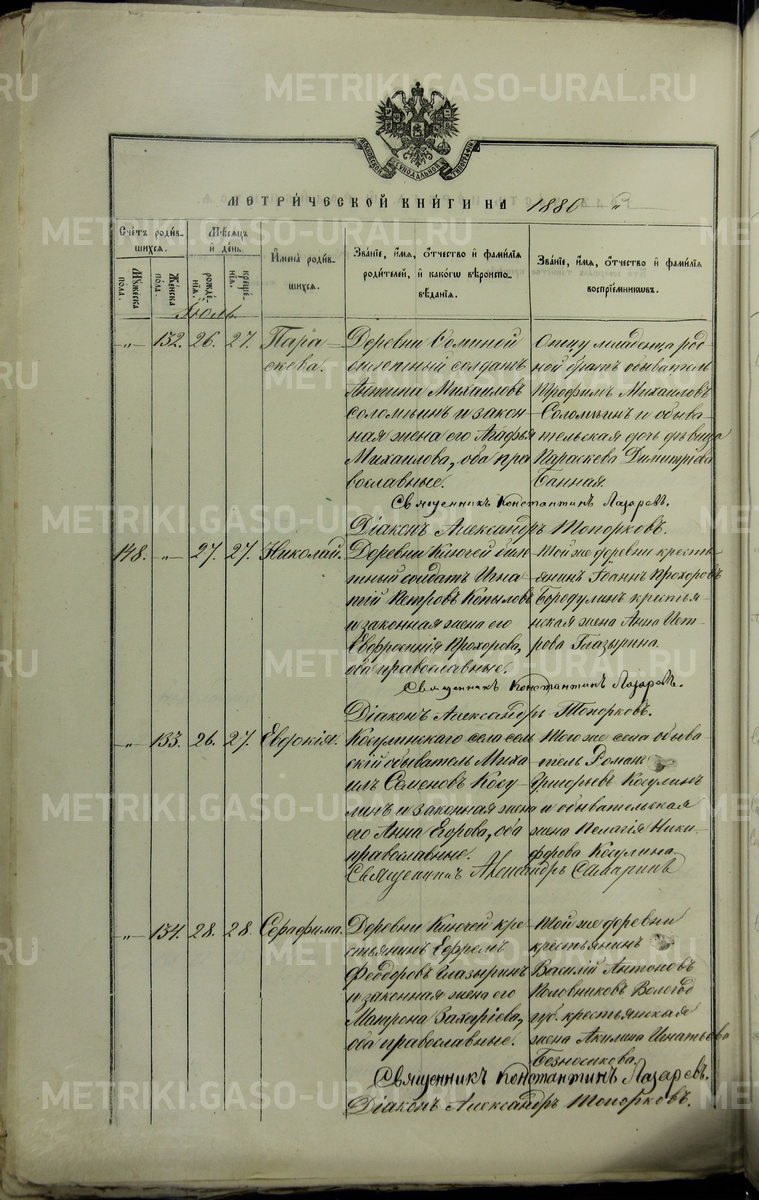 METRIKI.GASO-URAL.RU
МОСКОВСКОЙ СИНОДАЛЬНОЙ ТИПОГРАФІИ
МЕТРИ́ЧЕСКОЙ КНИ́ГИ НА 1880 й
Сче́тъ роди́в-шихся.
Мѣ́сяцъ и́ де́нь.
И҆мена̀ роди́в-шихся.
Зва́нїе, и҆́мѧ, ѻ҆́тчество и҆ фами́лїѧ роди́телей, и҆ како́гѡ вѣроисповѣ́данїѧ.
Зва́нїе, и҆́мѧ, ѻ҆́тчество и҆ фами́лїѧ воспрїе́мникѡвъ.
Мꙋ́жеска по́ла.
Же́нска по́ла.
рожде́нїѧ.
креще́нїѧ.
Іюль
„ 132. 26. 27. Пара-
скева.
Деревни
билетный солдатъ
Антипа Михаиловъ
Соломеинъ и закон-
ная жена его Агафья
Михаилова, оба пра-
вославные.
Опцу младенца род
ной братъ обыватель
Трофимъ Михаиловъ
Соломеинъ и обыва-
тельская дочь дѣвица
Параскева Димитріева
Банная.
Священникъ Константинъ Лазаревъ.
Діаконъ Александръ Топорковъ.
148. „ 27. 27. Николай.
Деревни Ключей биле-
тный солдатъ Игна
тій Петровъ Копыловъ
и законная жена его
Евфросинія Прохорова,
оба православные.
Той же деревни кресть-
янинъ Іоаннъ Прохоровъ
Бородулинъ крестья-
нская жена Анна Пет-
рова Глазырина.
Священникъ Константинъ Лазаревъ.
Діаконъ Александръ Топорковъ.
„ 133. 26. 27. Евдокія.
Косулинскаго села сель
скій обыватель Миха
илъ Семеновъ Косу-
линъ и законная жена
его Анна Егорова, оба
православные.
Того же села обыва-
тель Романъ
Григорьевъ Косулинъ
и обывательская
жена Пелагія Ники-
форова Косулина.
Священникъ Александръ Самаринъ
„ 134. 28. 28. Серафима.
Деревни Ключей кре-
стьянинъ Ефремъ
Феодоровъ Глазыринъ
и законная жена его
Матрона Захаріева,
оба православные.
Той же деревни
крестьянинъ
Василій Антоновъ
Половниковъ Вологод
губ. крестьянская
жена Акилина Игнатьева
Безносикова.
Священникъ Константинъ Лазаревъ.
Діаконъ Александръ Топорковъ.